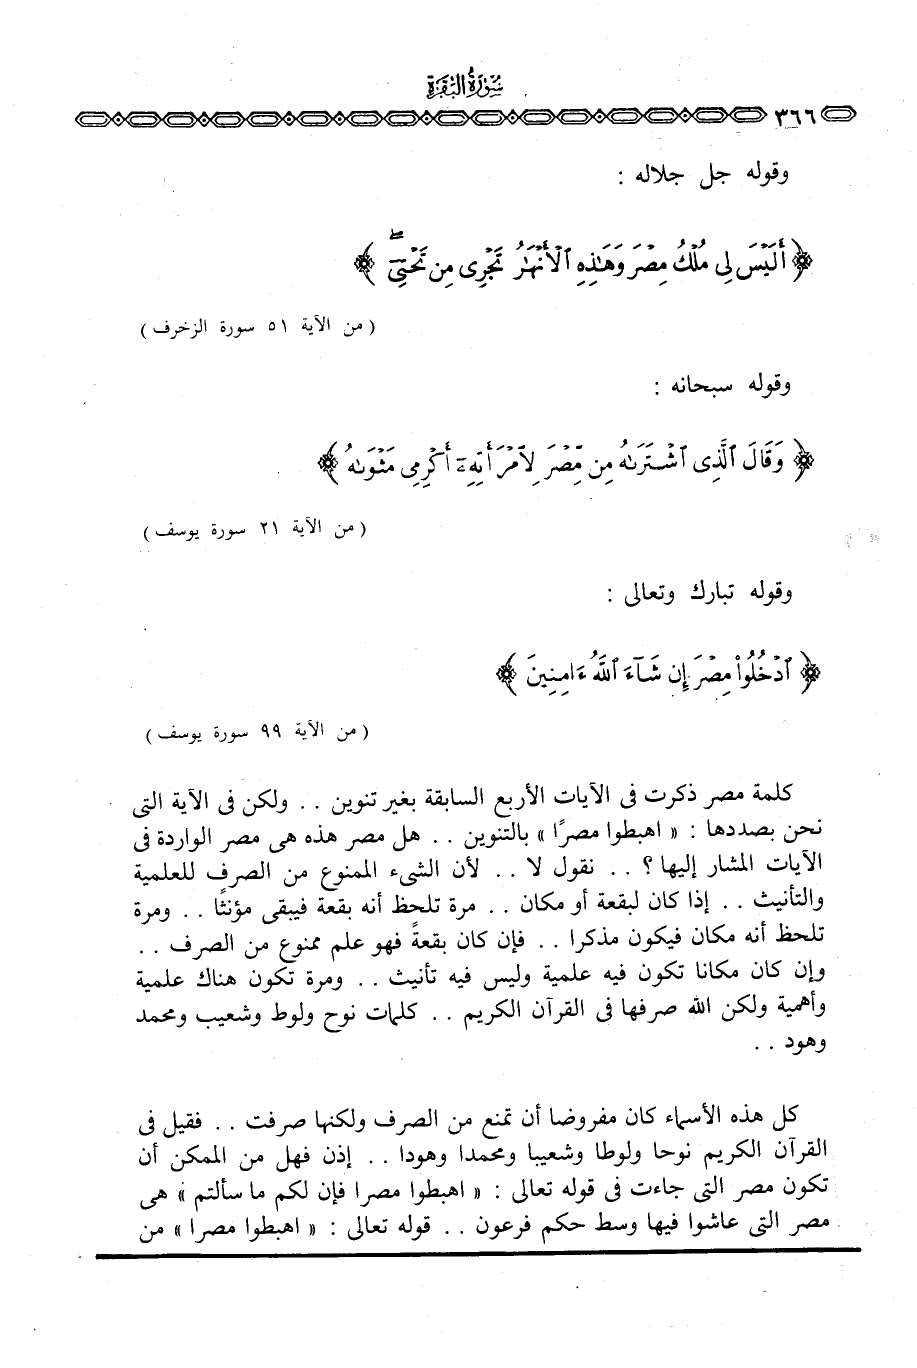 سورة البقرة
٣٦٦
وقوله جل جلاله :
﴿ أَلَيْسَ لِي مُلْكُ مِصْرَ وَهَـٰذِهِ ٱلْأَنْهَـٰرُ تَجْرِى مِن تَحْتِىٓ ۖ ﴾
( من الآية ٥١ سورة الزخرف )
وقوله سبحانه :
﴿ وَقَالَ ٱلَّذِى ٱشْتَرَىٰهُ مِن مِّصْرَ لِٱمْرَأَتِهِۦٓ أَكْرِمِى مَثْوَىٰهُ ﴾
( من الآية ٢١ سورة يوسف )
وقوله تبارك وتعالى :
﴿ ٱدْخُلُوا۟ مِصْرَ إِن شَآءَ ٱللَّهُ ءَامِنِينَ ﴾
( من الآية ٩٩ سورة يوسف )
كلمة مصر ذكرت فى الآيات الأربع السابقة بغير تنوين . . ولكن فى الآية التى
نحن بصددها : « اهبطوا مصرًا » بالتنوين . . هل مصر هذه هى مصر الواردة فى
الآيات المشار إليها ؟ . . نقول لا . . لأن الشىء الممنوع من الصرف للعلمية
والتأنيث . . إذا كان لبقعة أو مكان . . مرة تلحظ أنه بقعة فيبقى مؤنثًا . . ومرة
تلحظ أنه مكان فيكون مذكرا . . فإن كان بقعةً فهو علم ممنوع من الصرف . .
وإن كان مكانا تكون فيه علمية وليس فيه تأنيث . . ومرة تكون هناك علمية
وأهمية ولكن الله صرفها فى القرآن الكريم . . كلمات نوح ولوط وشعيب ومحمد
وهود . .
كل هذه الأسماء كان مفروضا أن تمنع من الصرف ولكنها صرفت . . فقيل فى
القرآن الكريم نوحا ولوطا وشعيبا ومحمدا وهودا . . إذن فهل من الممكن أن
تكون مصر التى جاءت فى قوله تعالى : « اهبطوا مصرا فإن لكم ما سألتم » هى
مصر التى عاشوا فيها وسط حكم فرعون . . قوله تعالى : « اهبطوا مصرا » من